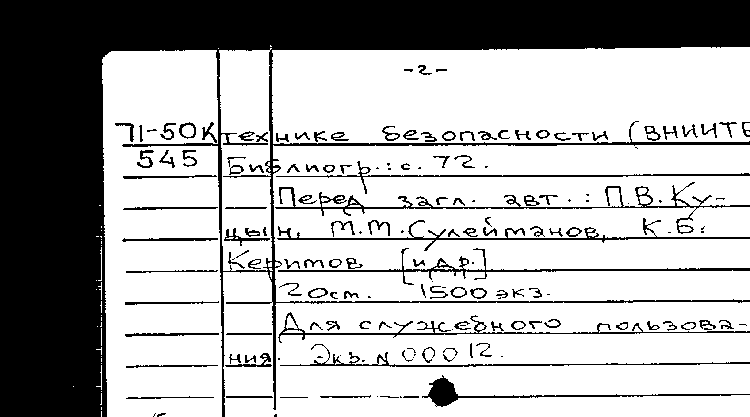 -2-
71-50К технике безопасности (ВНИИТБ
545 Библиогр.: с. 72.
Перед загл. авт.: П.В. Ку-
цын, М.М. Сулейманов, К.Б.
Керимов [и др.]
20см. 1500 экз.
Для служебного пользова-
ния. Экз. N 00012.